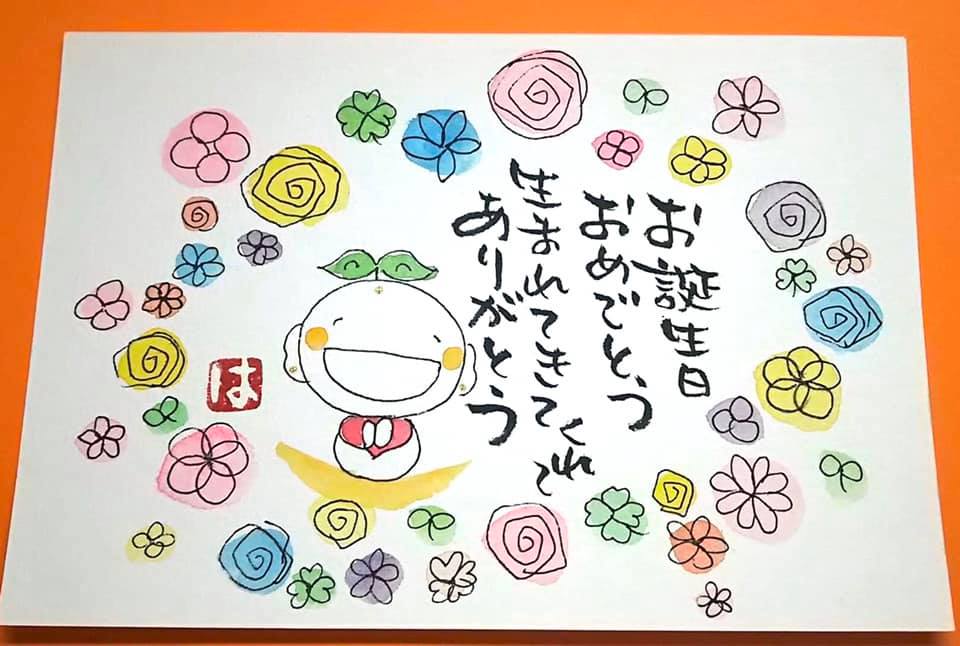 お誕生日
おめでとう
生まれてきてくれて
ありがとう
は